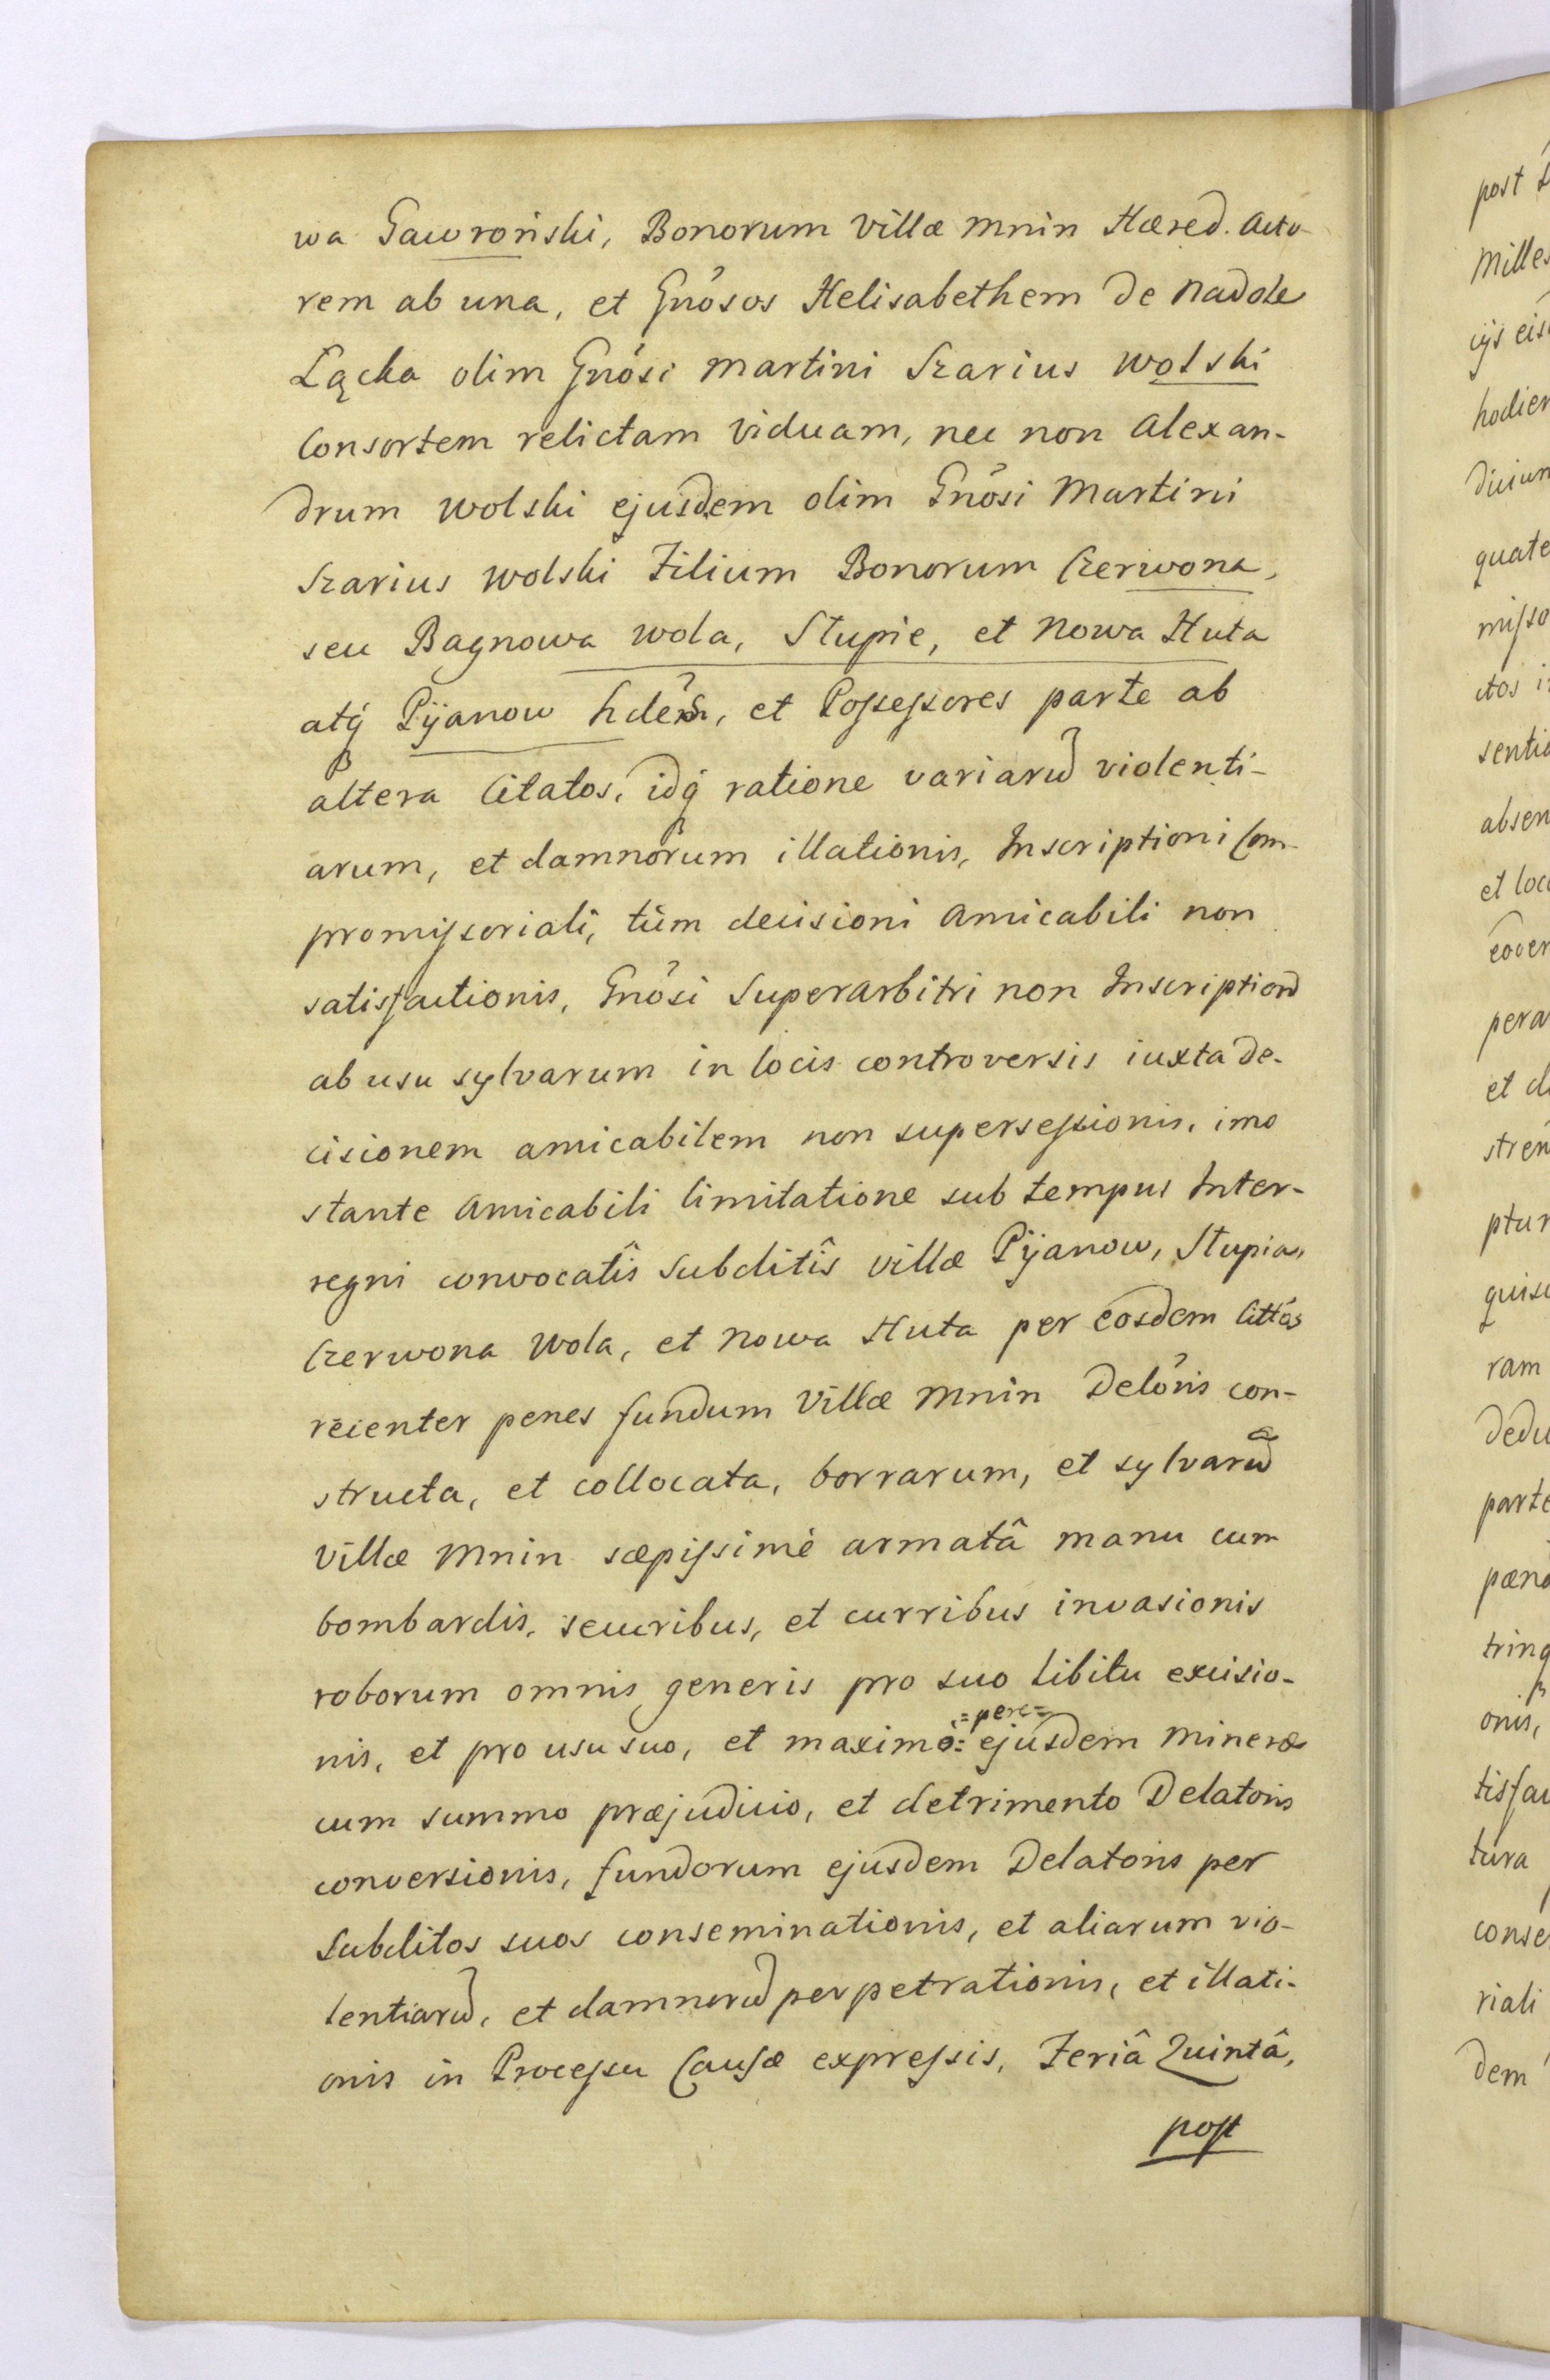 wa Gawroński, Bonorum Villæ Mnin Hæred. Acto-
rem ab una, et Gnôsos Helisabethem de Nadole
Łącka olim Gnôsi Martini Szarius Wolski
Consortem relictam Viduam, nec non Alexan-
drum Wolski ejusdem olim Gnôsi Martini
Szarius Wolski Filium Bonorum Czerwona,
seu Bagnowa Wola, Słupie, et Nowa Huta
atq́ Pijanow hdês, et Possessores parte ab
altera Citatos, idq́ ratione variarũ violenti-
arum, et damnorum illationis, Inscriptioni Com-
promissoriali, tùm decisioni Amicabili non
satisfactionis, Gnôsi Superarbitri non Inscriptionis
ab usu sylvarum in locis controversis iuxta de-
cisionem amicabilem non supersessionis, imo
stante Amicabili limitatione sub tempus Inter-
regni convocatîs Subditîs villæ Pijanow, Słupia,
Czerwona Wola, et Nowa Huta per eosdem Cittós
recenter penes fundum Villæ Mnin Delôris con-
structa, et collocata, borrarum, et sylvarũ
Villæ Mnin sæpissimè armatâ manu cum
bombardis, securibus, et curribus invasionis
roborum omnis generis pro suo libitu excisio-
nis, et pro usu suo, et maximè =pere= ejusdem Mineræ
cum summo præjudicio, et detrimento Delatoris
conversionis, fundorum ejusdem Delatoris per
Subditos suos conseminationis, et aliarum vio-
lentiarũ, et damnorũ perpetrationis, et illati-
onis in Processu Causæ expressis, Feriâ Quintâ,
post